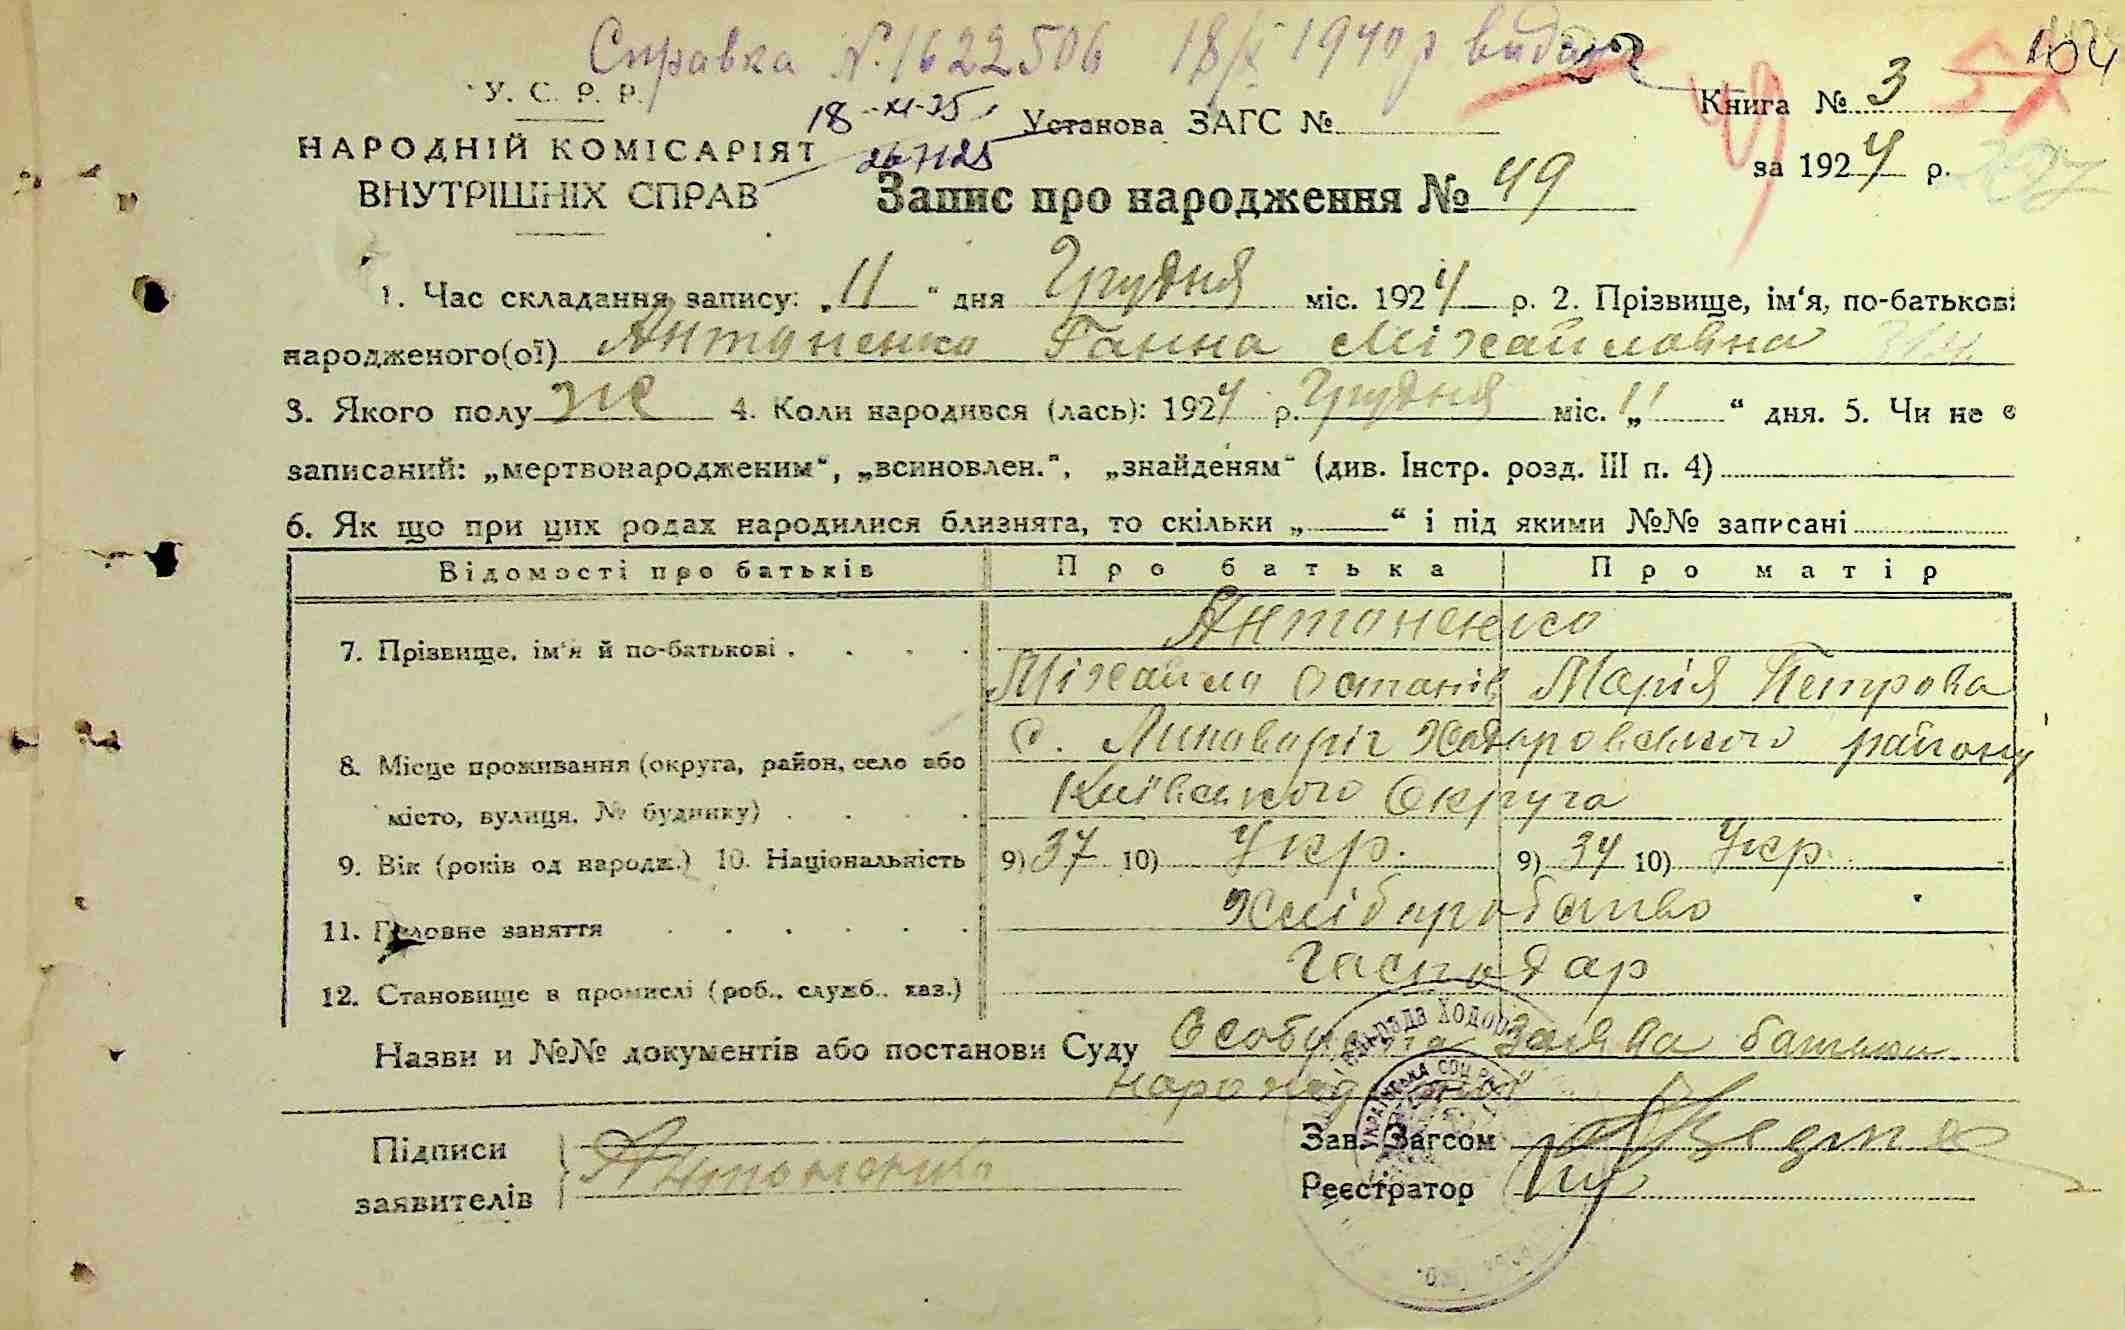 Справка № 1622506 18/X 1940 р видан
22
104
У. С. Р. Р.
18-XI-35
Установа ЗАГС №
Книга № 3
НАРОДНІЙ КОМІСАРІЯТ
267125
49
за 1924 р.
ВНУТРІШНІХ СПРАВ
Запис про народження № 49
1. Час складання запису: „11“ дня Грудня міс. 1924 р. 2. Прізвище, ім‘я, по-батькові
народженого(ої) Антоненко Ганна Міхайловна
3. Якого полу ж 4. Коли народився (лась): 1924 р. Грудня міс. „11“ дня. 5. Чи не є
записаний: „мертвонародженим“, „всиновлен.“, „знайденям“ (див. Інстр. розд. III п. 4)
6. Як що при цих родах народилися близнята, то скільки „ “ і під якими №№ записані
Відомості про батьків Про батька Про матір
Антоненко
7. Прізвище, ім‘я й по-батькові
Міхайло Остапів Марія Петрова
с. Липовиріг Ходоровського району
8. Місце проживання (округа, район, село або
місто, вулиця, № будинку)
Київського Округа
9. Вік (років од народж.) 10. Національність 9) 37 10) Укр. 9) 34 10) Укр.
11. Головне заняття Хліборобство
12. Становище в промислі (роб., служб., хаз.) Господар
Назви и №№ документів або постанови Суду Особиста заява батька
Підписи
заявителів
Антоненко
Зав. Загсом
Реєстратор
УКРАЇНСЬКА СОЦ. РАД.